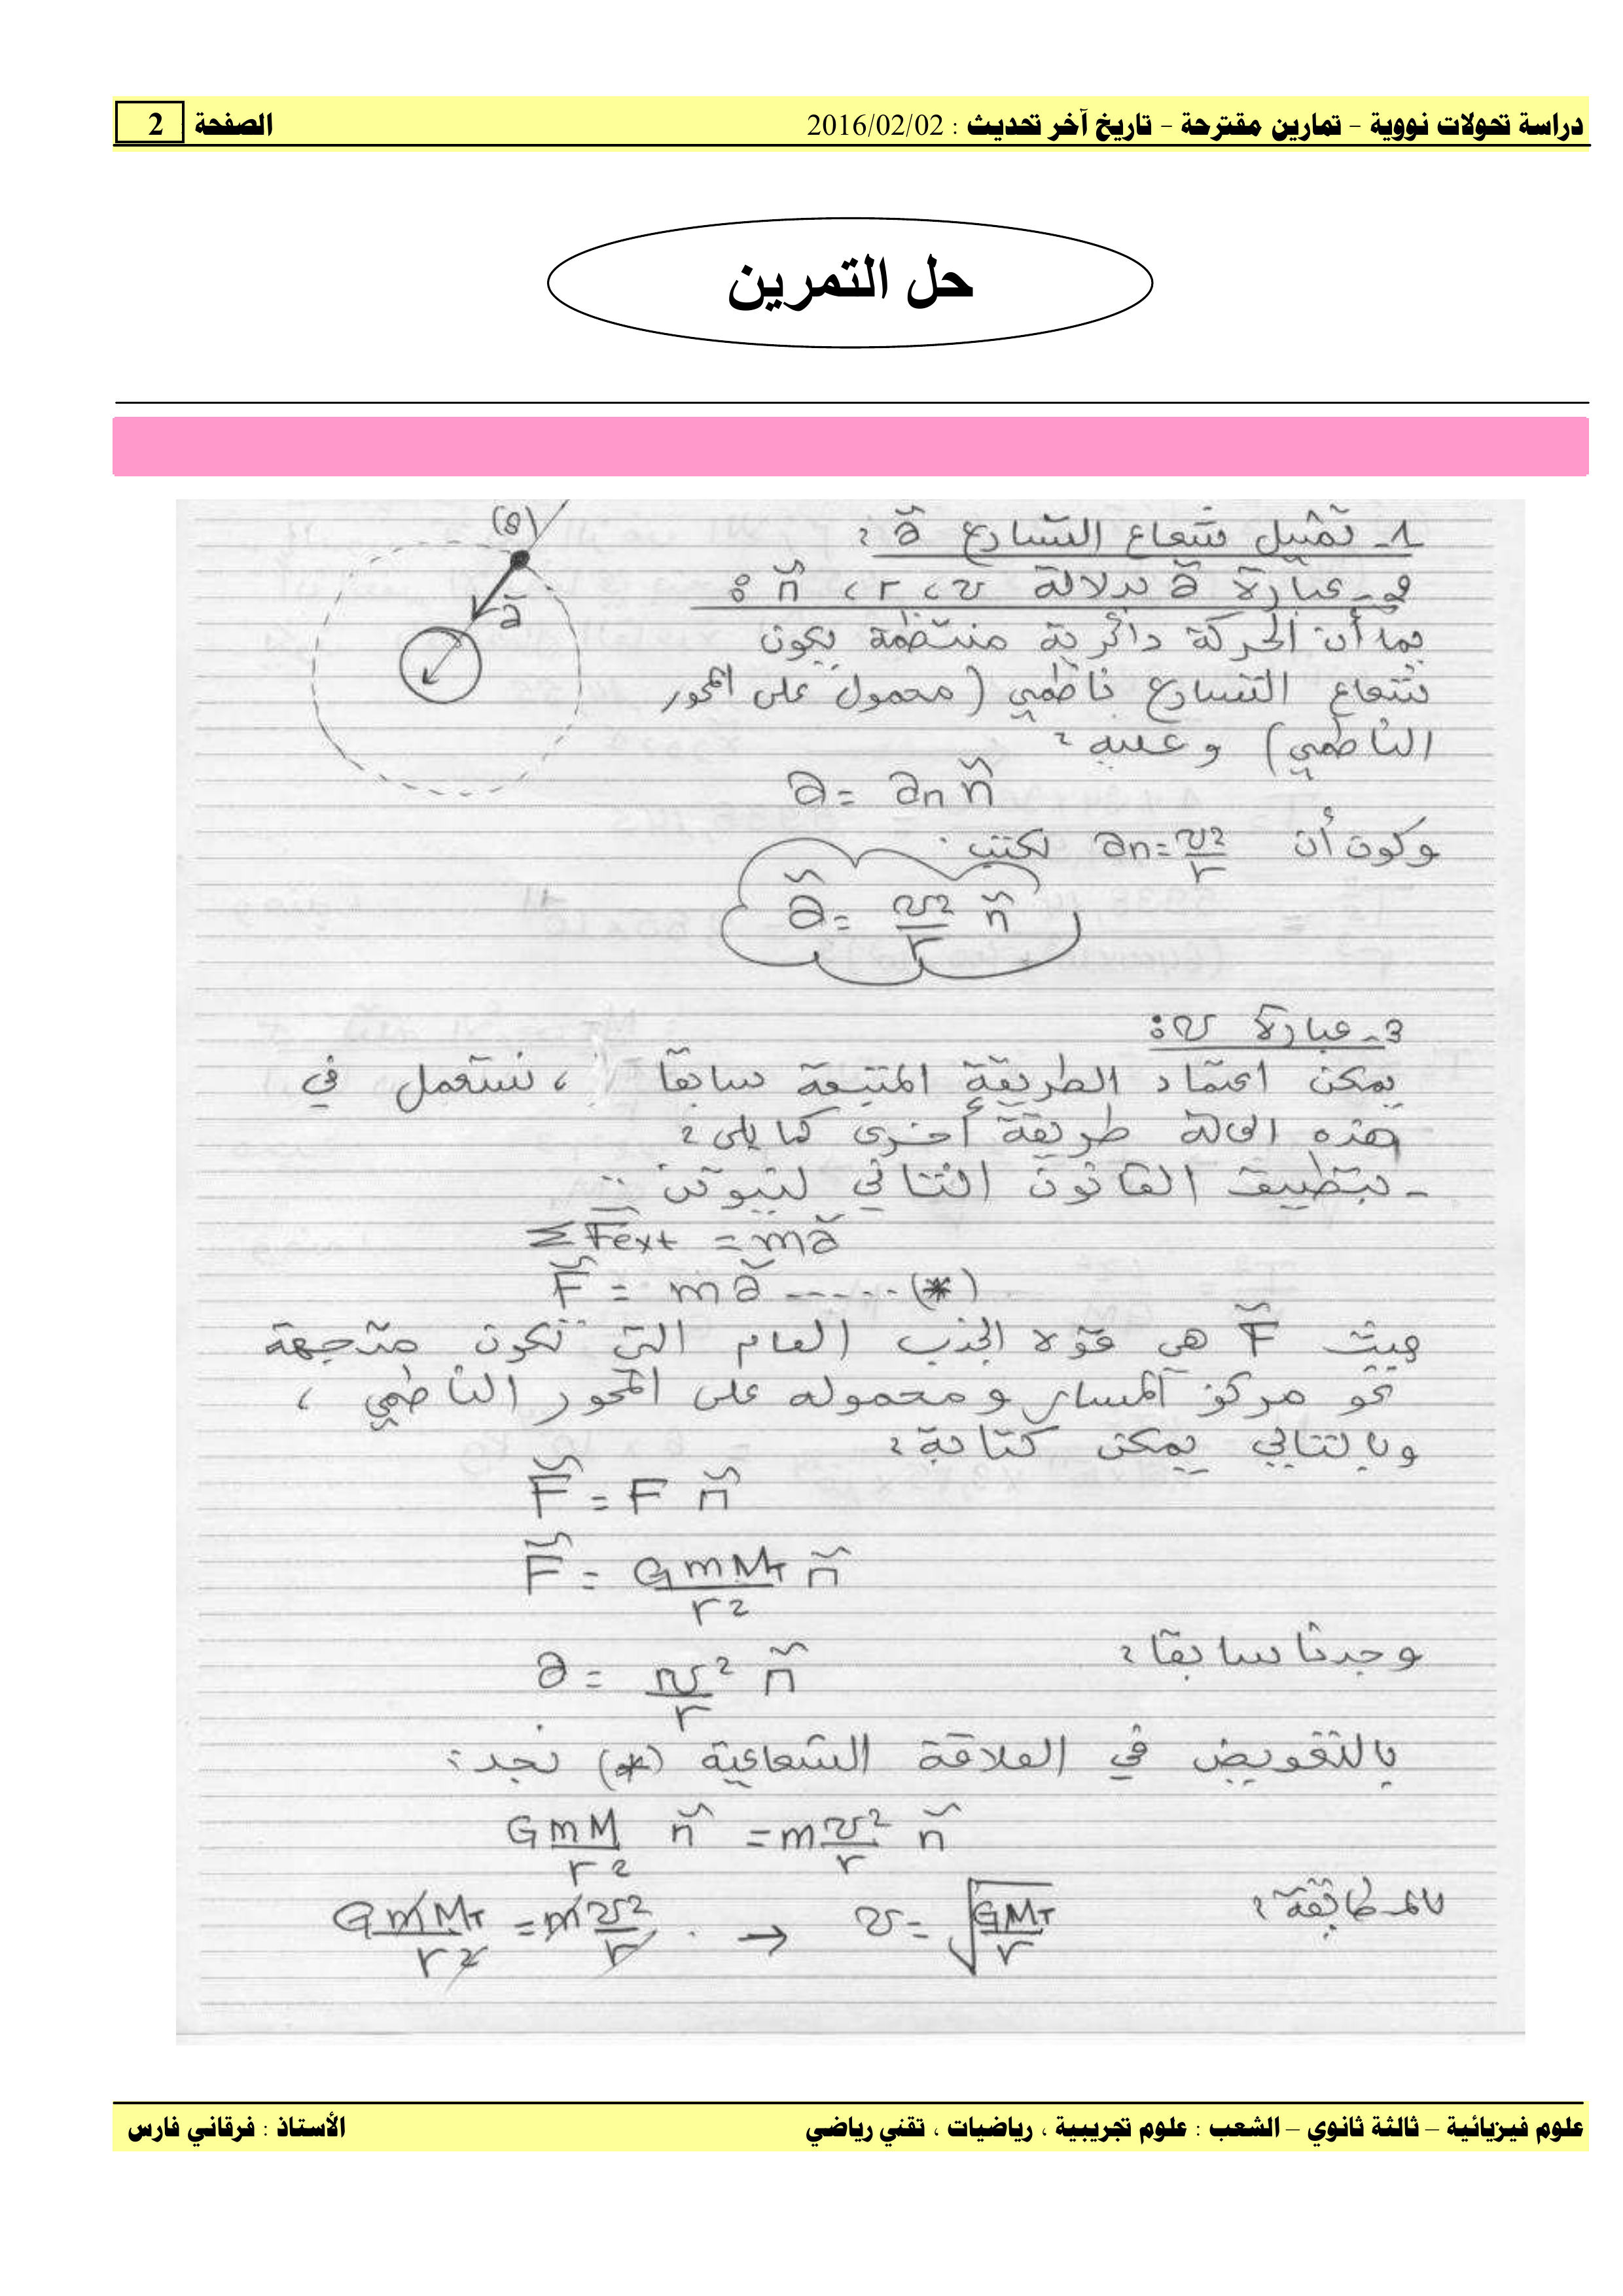 دراسة تحولات نووية – تمارين مقترحة – تاريخ آخر تحديث : 2016/02/02 الصفحة 2
حل التمرين
(S)
a
1- تمثيل شعاع التسارع a :
- عبارة a بدلالة v ، r ، n :
بما أن الحركة دائرية منتظمة يكون
شعاع التسارع ناظمي (محمول على المحور
الناظمي) وعليه :
a = an n
وكون أن an = v²/r نكتب :
a = v²/r n
3- عبارة v :
يمكن اعتماد الطريقة المتبعة سابقا ، نستعمل في
هذه الحالة طريقة أخرى كما يلي :
- بتطبيق القانون الثاني لنيوتن :
Σ Fext = ma
F = ma ------ (*)
حيث F هي قوة الجذب العام التي تكون متجهة
نحو مركز المسار ومحموله على المحور الناظمي ،
وبالتالي يمكن كتابة :
F = F n
F = G m MT / r² n
وجدنا سابقا :
a = v²/r n
بالتعويض في العلاقة الشعاعية (*) نجد :
G m M / r² n = m v²/r n
بالمطابقة :
G m MT / r² = m v²/r → v = √(G MT / r)
علوم فيزيائية – ثالثة ثانوي – الشعب : علوم تجريبية ، رياضيات ، تقني رياضي الأستاذ : فرقاني فارس